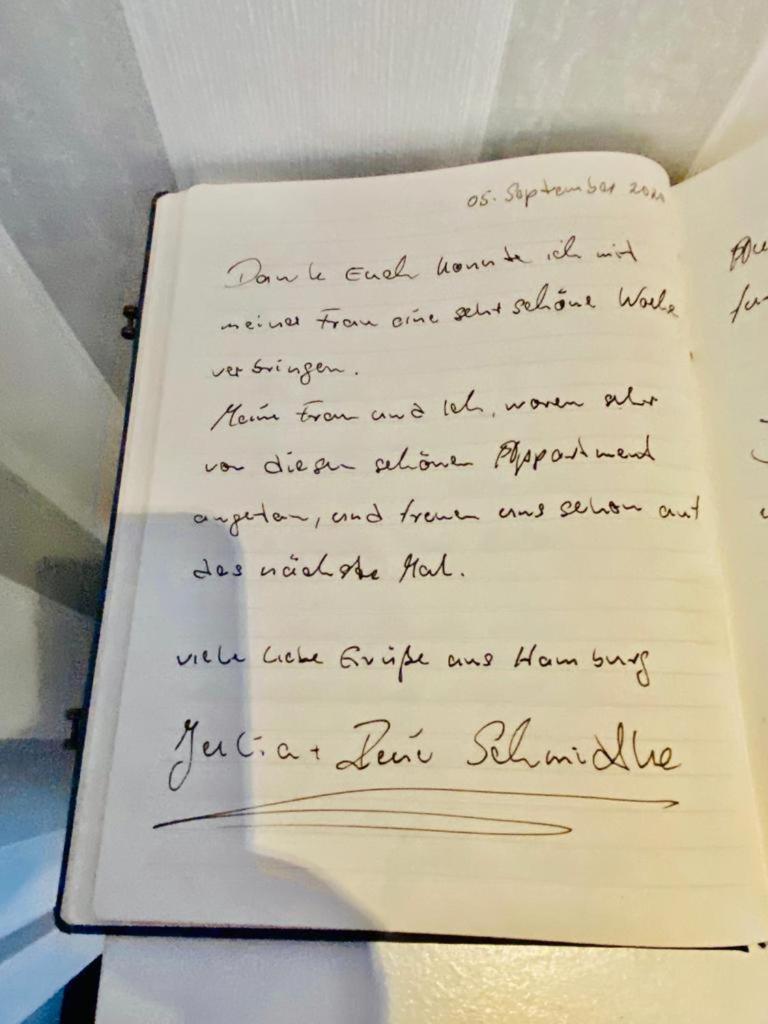 05. September
Dank Euch konnte ich mit
meiner Frau eine sehr schöne Woche
verbringen.
Meine Frau und Ich, waren sehr
von diesen schönen Appartment
angetan, und freuen uns schon auf
das nächste Mal.
viele liebe Grüße aus Hamburg
Julia + René